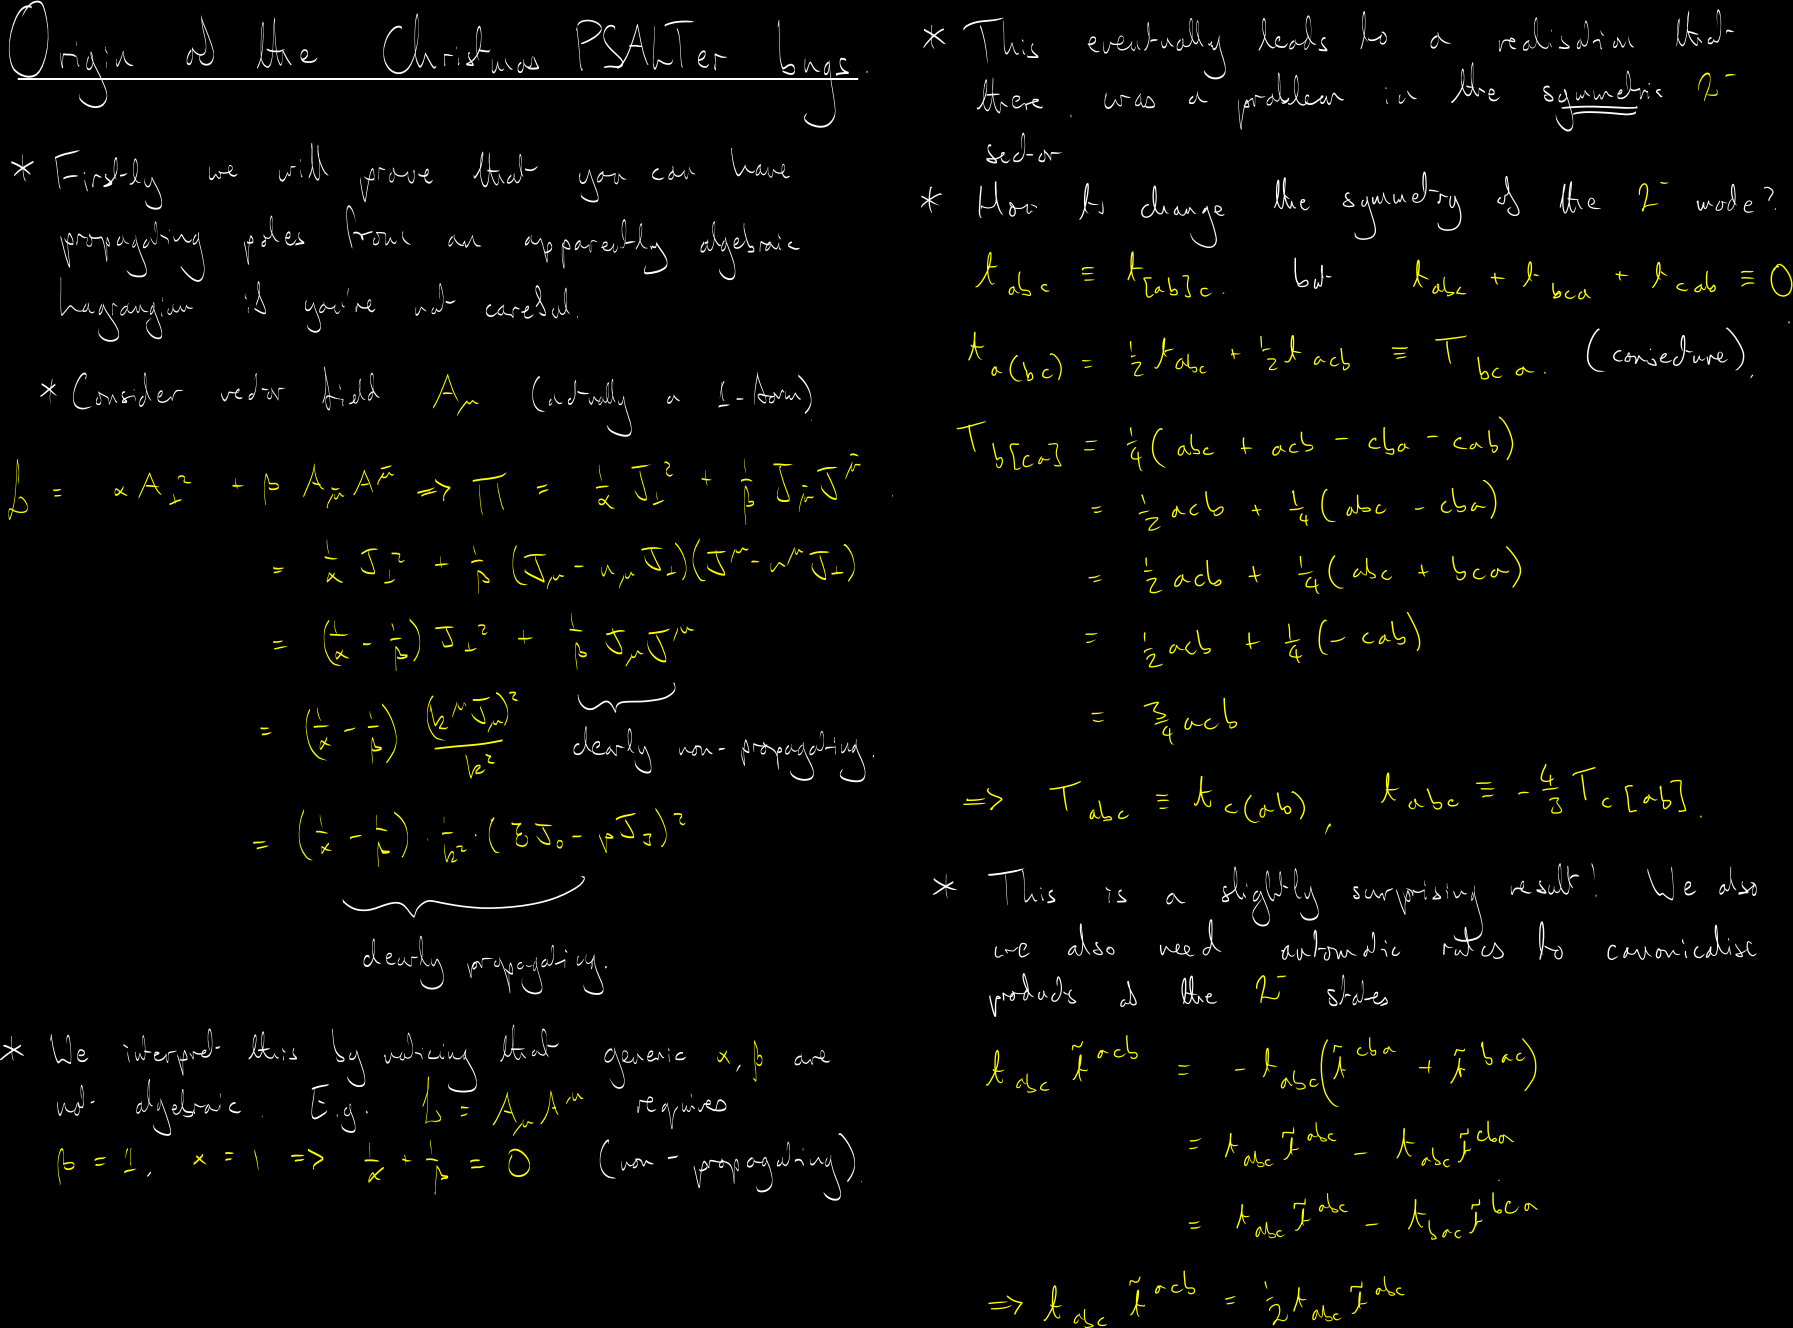 Origin of the Christmas PSALTer bugs.
* Firstly we will prove that you can have
propagating poles from an apparently algebraic
Lagrangian if you're not careful.
* Consider vector field A_μ (actually a 1-form)
L = α A_⊥² + β A_μ̄ A^μ̄ => Π = 1/α J_⊥² + 1/β J_μ̄ J^μ̄
= 1/α J_⊥² + 1/β (J_μ - n_μ J_⊥)(J^μ - n^μ J_⊥)
= (1/α - 1/β) J_⊥² + 1/β J_μ J^μ
= (1/α - 1/β) (k^μ J_μ)²/k² clearly non-propagating.
= (1/α - 1/β) · 1/k² · (ℰJ_0 - pJ_3)²
clearly propagating.
* We interpret this by noticing that generic α, β are
not algebraic. E.g. L = A_μ A^μ requires
β = 1, α = 1 => 1/α + 1/β = 0 (non-propagating).
* This eventually leads to a realisation that
there was a problem in the symmetric 2⁻
sector
* How to change the symmetry of the 2⁻ mode?
t_abc ≡ t_[ab]c. but t_abc + t_bca + t_cab ≡ 0
t_a(bc) = ½ t_abc + ½ t_acb ≡ T_bca. (conjecture).
T_b[ca] = ¼(abc + acb - cba - cab)
= ½ acb + ¼(abc - cba)
= ½ acb + ¼(abc + bca)
= ½ acb + ¼(- cab)
= ¾ acb
=> T_abc ≡ t_c(ab), t_abc ≡ -4/3 T_c[ab].
* This is a slightly surprising result! We also
we also need automatic rules to canonicalise
products of the 2⁻ states
t_abc t̃^acb = - t_abc(t̃^cba + t̃^bac)
= t_abc t̃^abc - t_abc t̃^cba
= t_abc t̃^abc - t_bac t̃^bca
=> t_abc t̃^acb = ½ t_abc t̃^abc